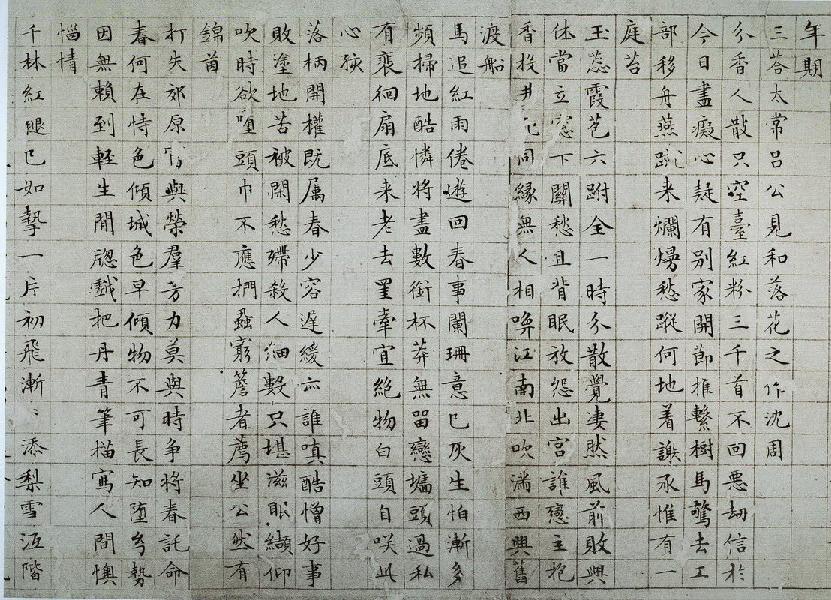 年期
三荅太常吕公見和落花之作沈周
分香人散只空臺紅粉三千首不回惡劫信於
今日盡癡心疑有别家開節推繫樹馬驚去工
部移舟燕蹴来爛熳愁蹤何地着謝承惟有一
庭苔
玉蕊霞苞六跗全一時分散覺凄然風前敗興
休當立窓下關愁且背眠放怨出宫誰戀主抱
香投井死同緣無人相喚江南北吹滿西興舊
渡船
馬追紅雨倦遊回春事闌珊意已灰生怕漸多
頻掃地酷憐將盡數銜杯莽無留戀墻頭過私
有裵徊扇底来老去罣牽宜絶物白頭自咲此
心孩
落柄開權既属春少容遅緩亦誰嗔酷憎好事
敗塗地苦被閑愁殢殺人細數只堪滋眼纈仰
吹時欲堕頭巾不應捫蝨窮簷者薦坐公然有
錦茵
打失郊原富與榮羣芳力莫與時争將春託命
春何在恃色傾城色早傾物不可長知堕勢
因無賴到輕生閒牕戲把丹青筆描寫人間懊
惱情
千林紅褪已如摯一片初飛漸〻添梨雪沍階